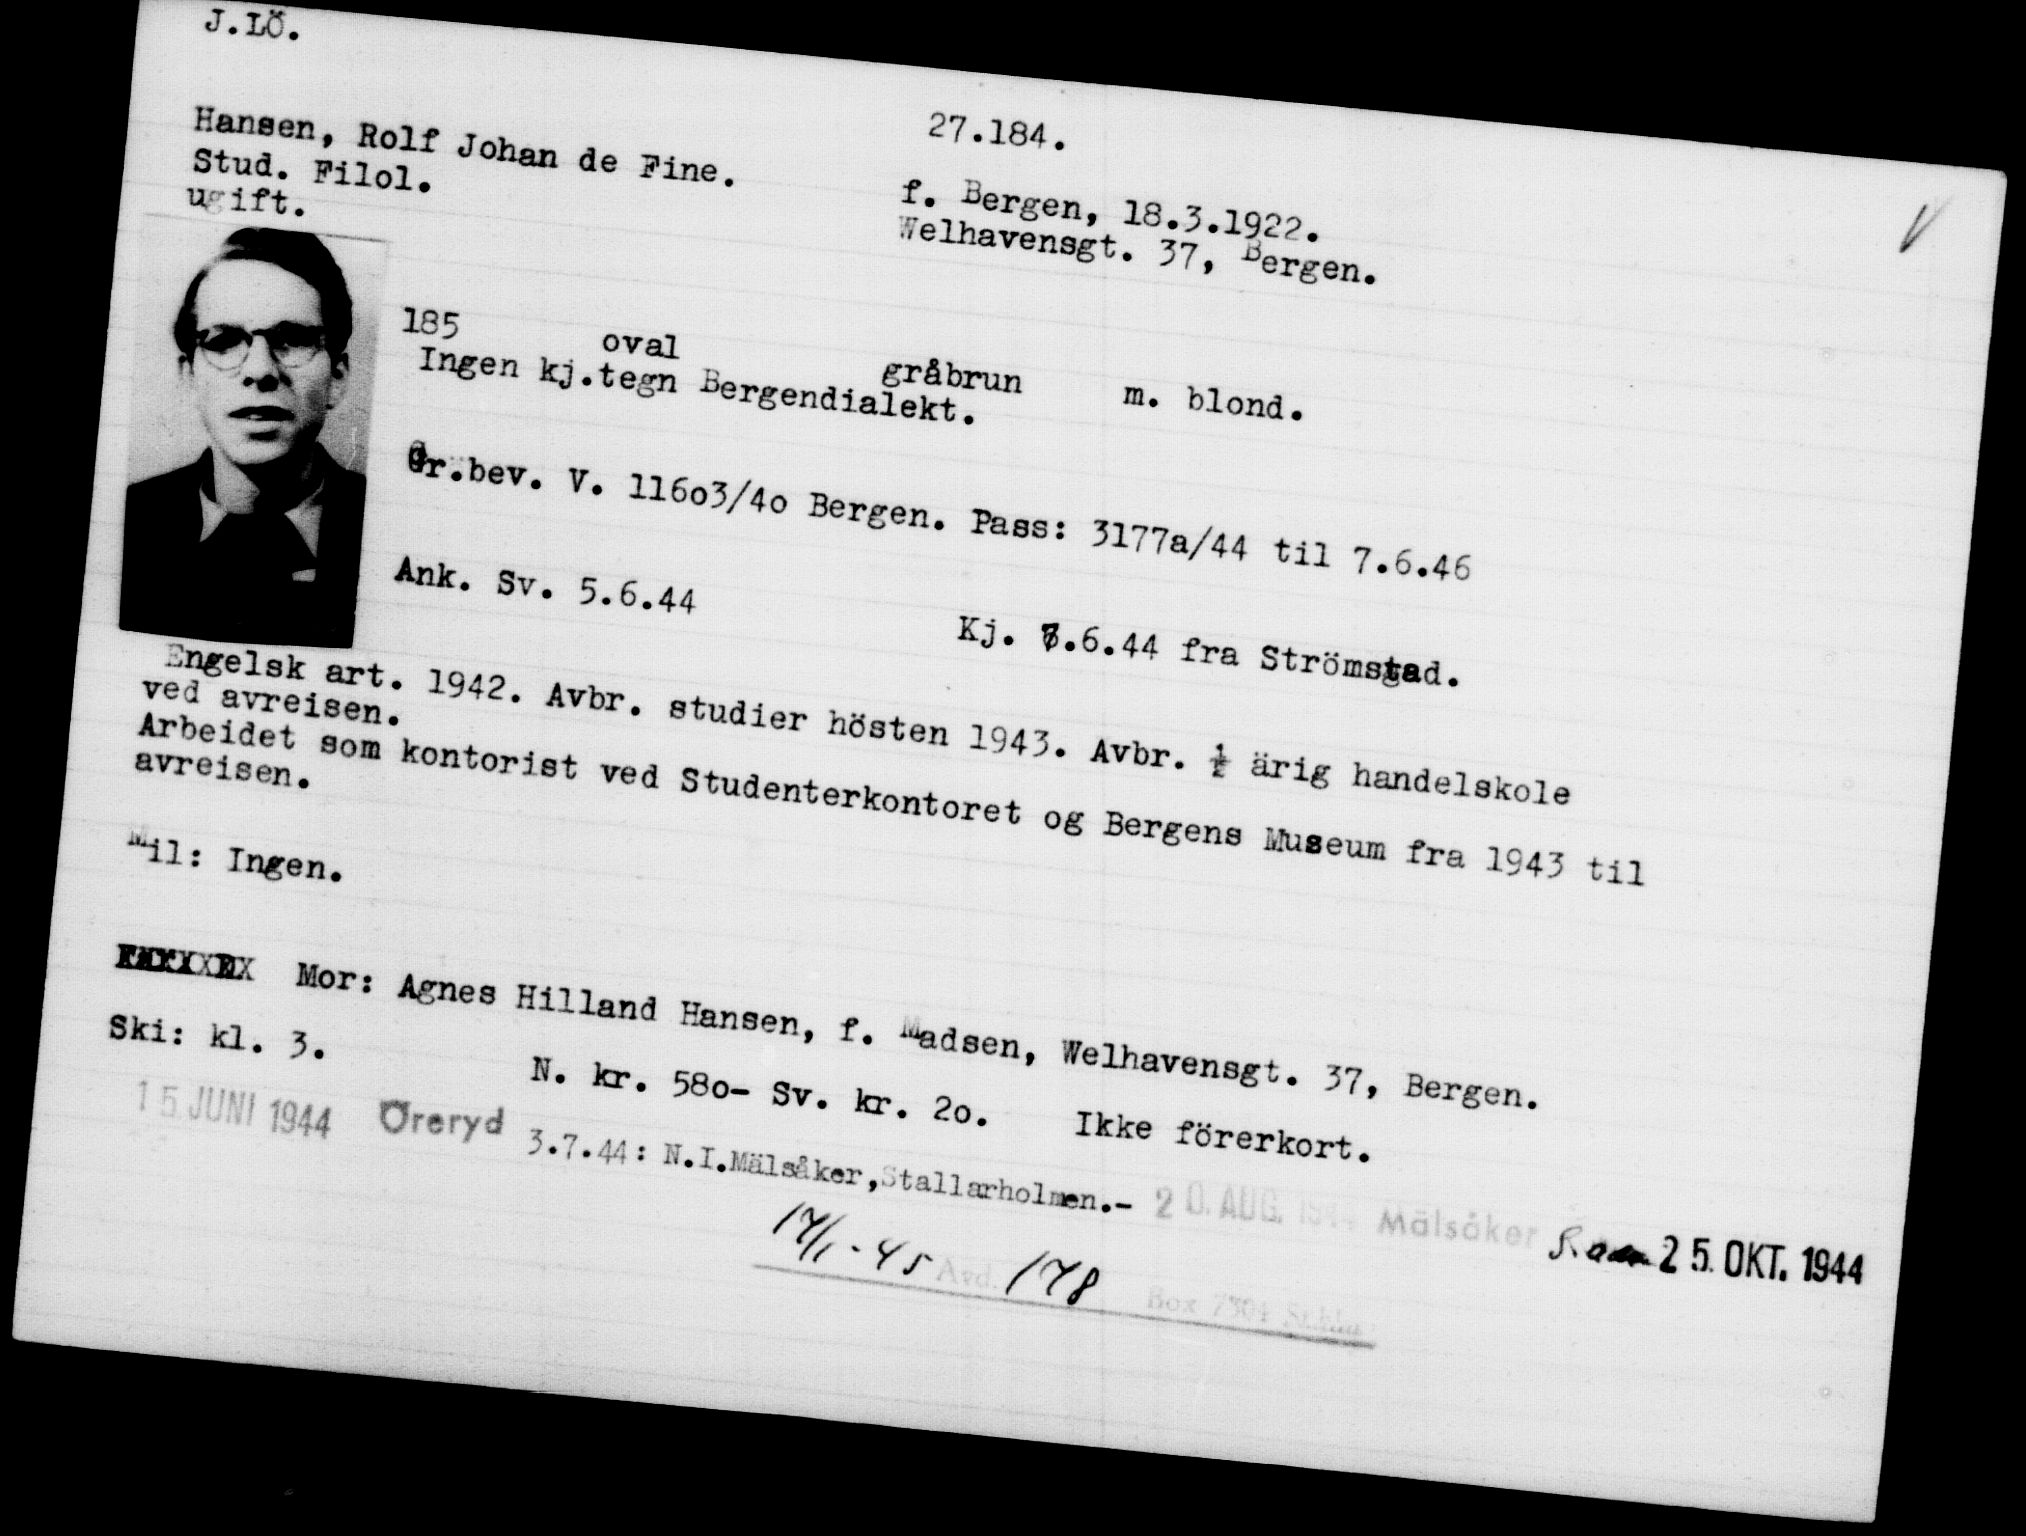 J.LÖ.
27.184.
Hansen, Rolf Johan de Fine.
Stud. Filol.
ugift.
f. Bergen, 18.3.1922.
Welhavensgt. 37, Bergen.
185 oval gråbrun m. blond.
Ingen kj.tegn Bergendialekt.
Gr.bev. V. 116o3/4o Bergen. Pass: 3177a/44 til 7.6.46
Ank. Sv. 5.6.44 Kj. 7.6.44 fra Strömstad.
Engelsk art. 1942. Avbr. studier hösten 1943. Avbr. ½ ärig handelskole
ved avreisen.
Arbeidet som kontorist ved Studenterkontoret og Bergens Museum fra 1943 til
avreisen.
Mil: Ingen.
Mor: Agnes Hilland Hansen, f. Madsen, Welhavensgt. 37, Bergen.
Ski: kl. 3. N. kr. 58o- Sv. kr. 2o. Ikke förerkort.
15 JUNI 1944 Öreryd
3.7.44: N.I.Mälsåker,Stallarholmen.- 20. AUG. 1944 Mälsåker 25. OKT. 1944
17/1-45 Avd. 178 Box 7304